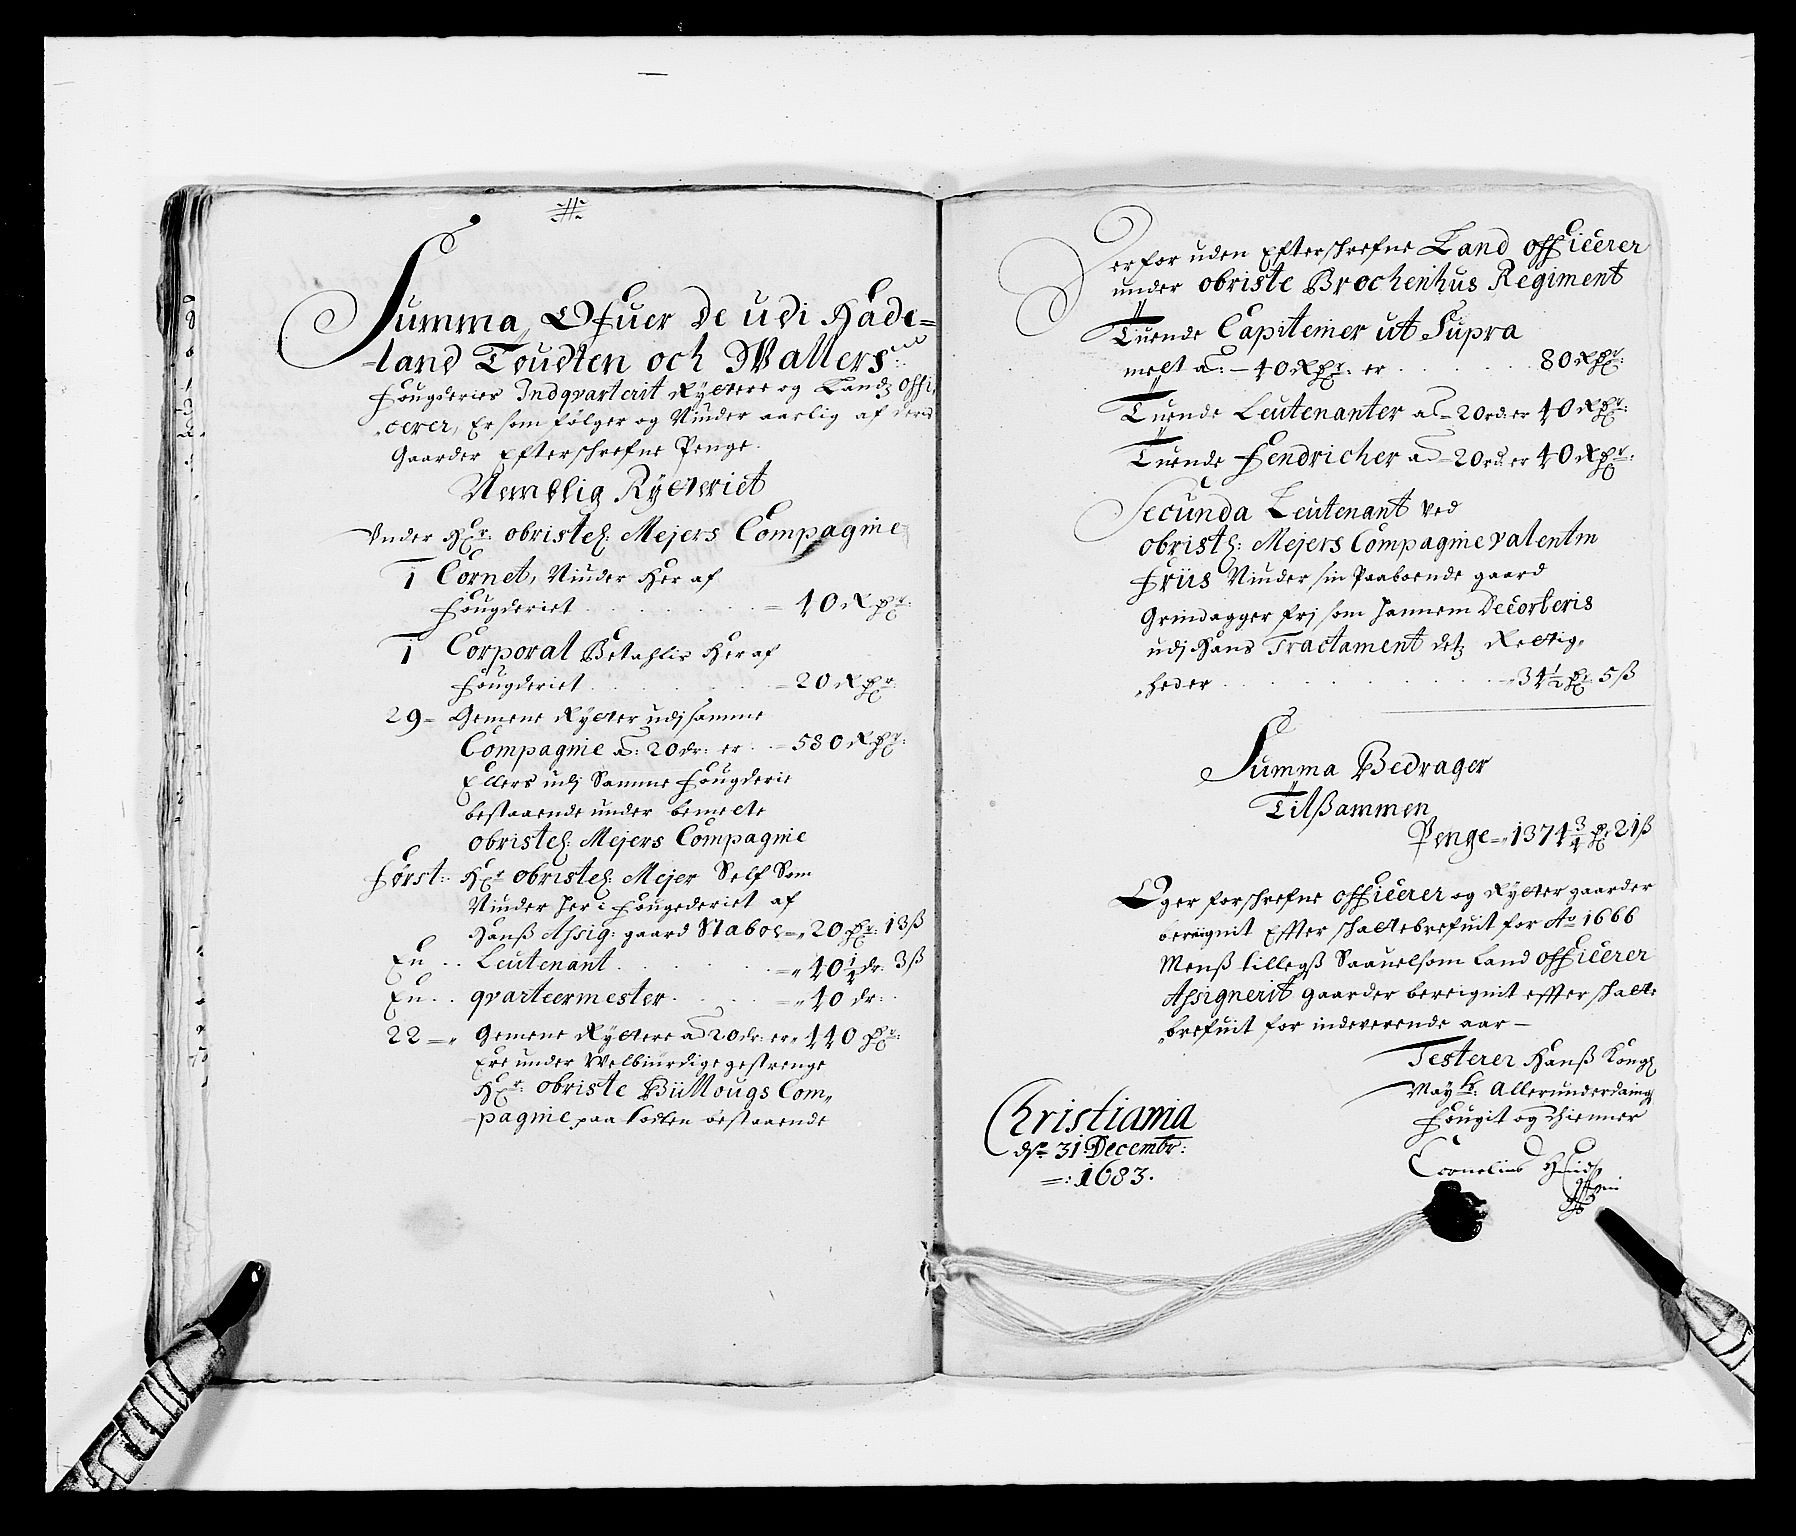 Summa, Ofuer De udi Hade-
land Toudten och Wallers:
fougderier Indqvarterit Ryttere og Landz offi,
,cerer, Er som følger og Niuder aarlig af deris
Gaarder Efterschrefne Penge.
Nemblig Rytteriet
Vnder Hr: obristel: Mejers Compagnie
1 Cornet, Niuder Her af
fougderiet . . . = 40 Rdr:
1 Corporal Betahlis Her af
fougderiet . . . = 20 Rdr:
29 = Gemene Rytter udj samme
Compagnie a: 20 dr: er . = 580 Rdr:
Ellers udj Samme fougderie
bestaaende under bemelte
obristel: Mejers Compagnie
først: Hr obristel: Mejer Self Som
Niuder her i fougederiet af
Hanß Assig: gaard Staboe =„ 20 dr: 13 ß
En . . Leutenant . . . =„ 40 1/4 dr: 3 ß
En . . qvarteermester . . . =„ 40 dr: .
22 =„ Gemene Ryttere a 20 dr: er „ 440 dr:
Ere under Welbiurdige gestrenge
Hr: obriste Biillougs Com„
-pagnie, paa Todten bestaaende
Derfor uden Efterschrefne Land officerer
under obriste Brochenhus Regiment
Tuende Capiteiner ut Supra
melt a: - 40 Rdr: er . . . 80 Rdr:
Tuende Leutenanter a = 20 rd: er 40 Rdr:
Tuende Fendricher a = 20 rd: er 40 Rdr:
Secunda Leutenant ved
obristl: Mejers Compagnie Valentin
Friis Niuder sin Paaboende gaard
Grindagger frj som hannem Decorteris
udj Hans Tractament detz Rettig„
„heder . . . =„ 34 1/2 dr 5 ß
Summa Bedrager
Tilßammen
Penge =„ 1374 3/4 dr 21 ß
Oger forschrefne officerer og Rytter gaarder
bereignit Effter schattebrefuit for Ao 1666
Menß tillegß Saauelsom Land officerer
Assignerit gaarder bereignit effter schatte
„brefuit for indeverende aar -
Testerer Hanß Kongl
Mayts: Allerunderdanig
fougit og Thienner
Christiania
dn 31 Decembr:
=: 1683.
Cornelius